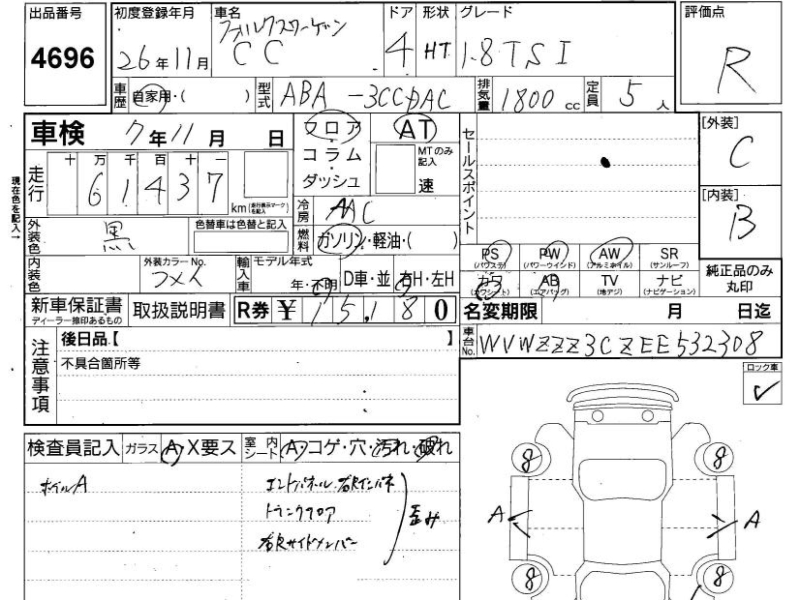 出品番号 4696
初度登録年月 26年11月
車名 フォルクスワーゲン CC
ドア 4
形状 HT
グレード 1.8TSI
評価点 R
車歴 自家用・( )
型式 ABA-3CCDAC
排気量 1800 cc
定員 5 人
車検 7年11月 日
フロア
コラム
ダッシュ
AT
MTのみ記入 速
セールスポイント
[外装] C
[内装] B
現在色を記入→
走行 十 万 千 百 十 一
61437 km (走行距離マークを記入)
冷房 AAC
燃料 ガソリン・軽油・( )
外装色 黒
色替車は色替と記入
内装色
外装カラーNo. コメ人
輸入車 モデル年式 年・不明
D車・並 右H・左H
PS (パワステ) PW (パワーウインド) AW (アルミホイル) SR (サンルーフ)
カワ (カワシート) AB (エアバッグ) TV (地デジ) ナビ (ナビゲーション)
純正品のみ丸印
新車保証書 ディーラー捺印あるもの
取扱説明書
R券 ¥ 15,180
名変期限 月 日迄
車台No. WVWZZZ3CZEE532308
注意事項
後日品【 】
不具合箇所等
ロック車 ✓
検査員記入 ガラス A・X要ス 室内シート A・コゲ・穴・汚れ・破れ
ホイルA
エンドパネル、右Rインパネ
トランクフロア
右Rサイドメンバー
歪み
8 8
A A
8 8